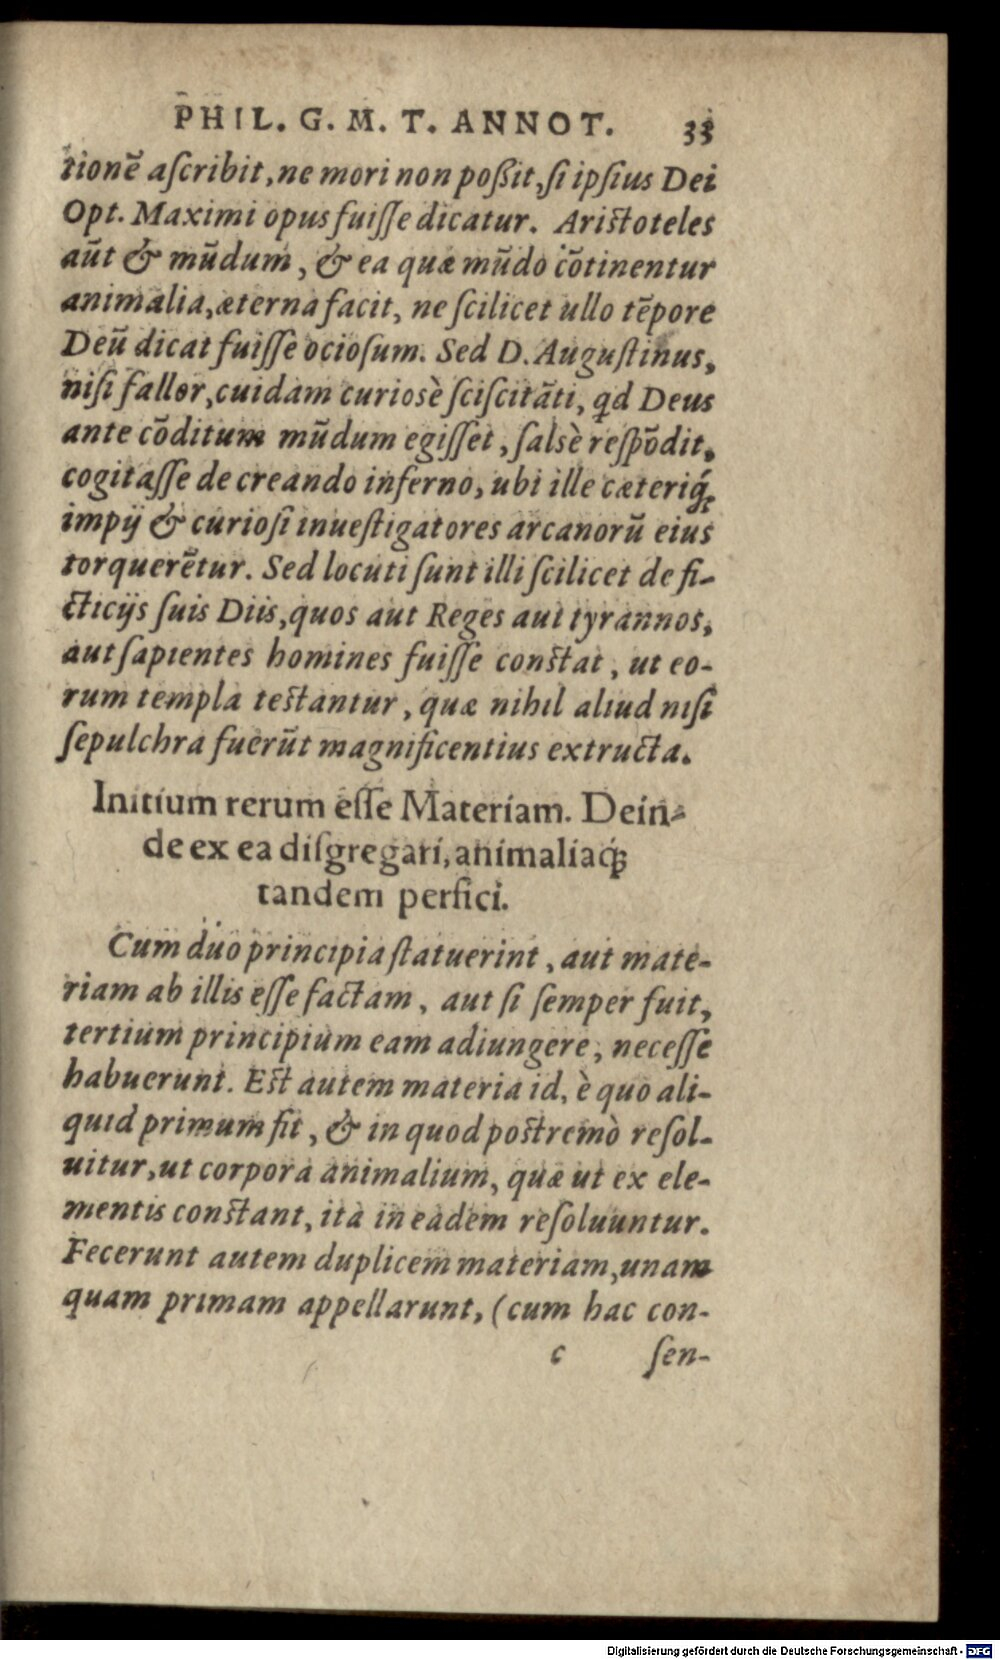 PHIL. G. M. T. ANNOT. 33
tionē aſcribit, ne mori non poßit, ſi ipſius Dei
Opt. Maximi opus fuiſſe dicatur. Ariſtoteles
aūt & mūdum, & ea quæ mūdo cōtinentur
animalia, æterna facit, ne ſcilicet ullo tēpore
Deū dicat fuiſſe ocioſum. Sed D. Auguſtinus,
niſi fallor, cuidam curiosè ſciſcitāti, qd Deus
ante cōditum mūdum egiſſet, ſalsè reſpōdit,
cogitaſſe de creando inferno, ubi ille cæteriq́;
impij & curioſi inueſtigatores arcanorū eius
torquerētur. Sed locuti ſunt illi ſcilicet de fi-
cticijs ſuis Diis, quos aut Reges aut tyrannos,
aut ſapientes homines fuiſſe conſtat, ut eo-
rum templa teſtantur, quæ nihil aliud niſi
ſepulchra fuerūt magnificentius extructa.
Initium rerum eſſe Materiam. Dein-
de ex ea diſgregari, animaliaq́;
tandem perfici.
Cum duo principia ſtatuerint, aut mate-
riam ab illis eſſe factam, aut ſi ſemper fuit,
tertium principium eam adiungere, neceſſe
habuerunt. Eſt autem materia id, è quo ali-
quid primum fit, & in quod poſtremò reſol-
uitur, ut corpora animalium, quæ ut ex ele-
mentis conſtant, ità in eadem reſoluuntur.
Fecerunt autem duplicem materiam, unam
quam primam appellarunt, (cum hac con-
c ſen-
Digitalisierung gefördert durch die Deutsche Forschungsgemeinschaft - DFG